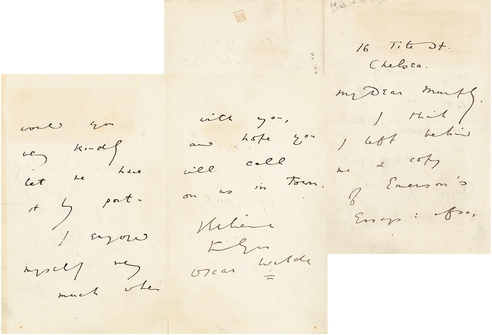 16 Tite St.
Chelsea.
My Dear Murphy.
I think
I left behind
me a copy
of Emerson's
Essays: if so,
would you
very kindly
let me have
it by post.
I enjoyed
myself very
much when
with you,
and hope you
will call
on us in town.
Believe
Oscar Wilde